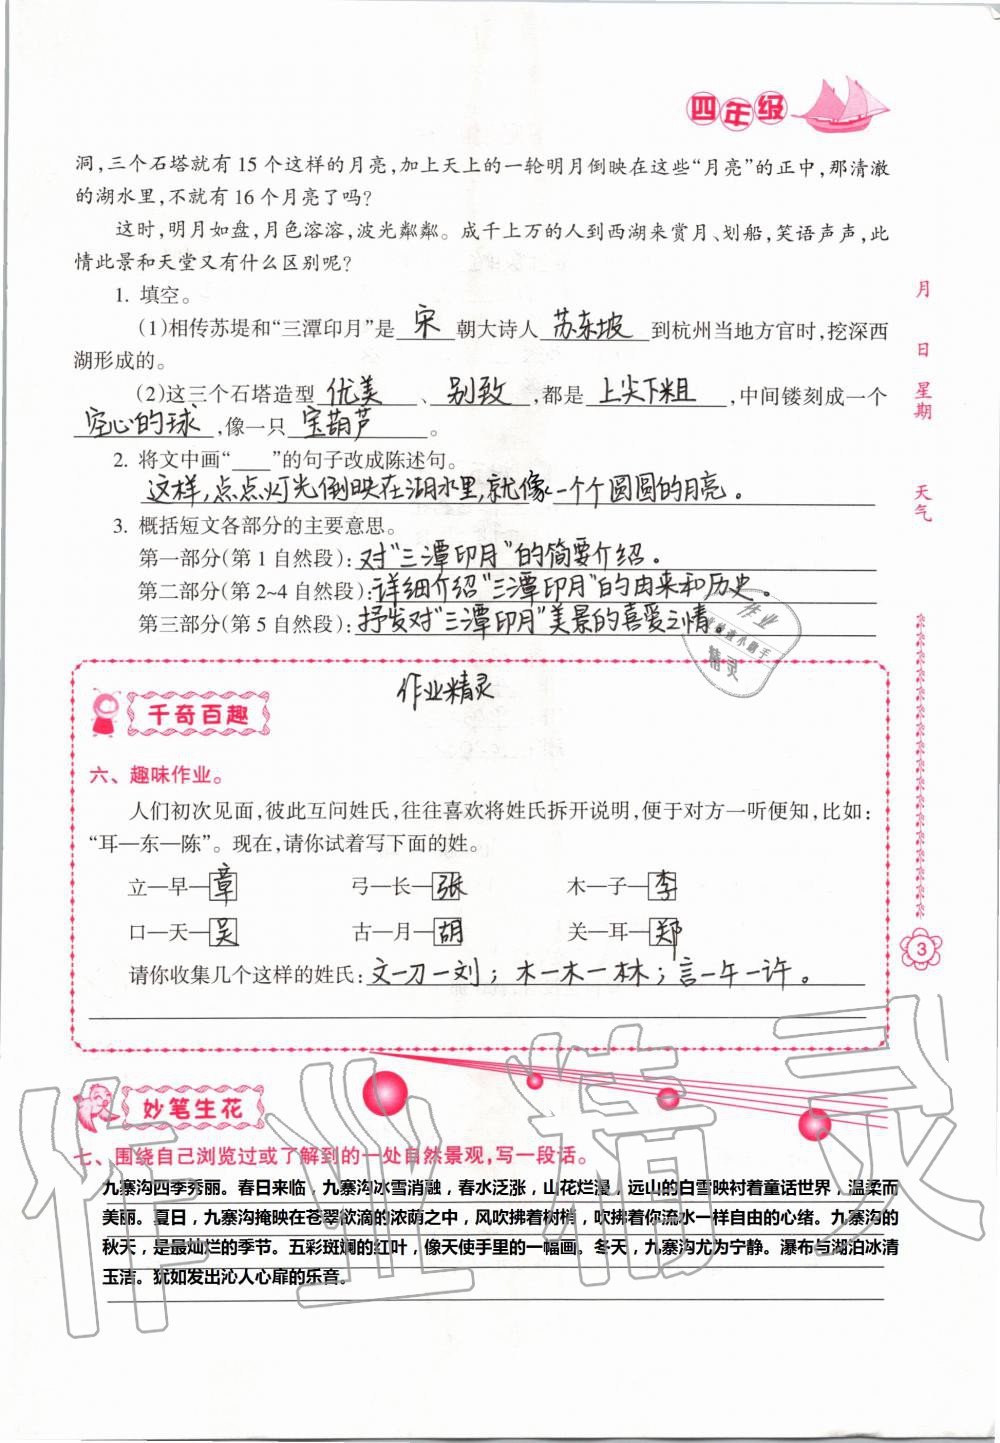 四年级
洞,三个石塔就有15个这样的月亮,加上天上的一轮明月倒映在这些“月亮”的正中,那清澈
的湖水里,不就有16个月亮了吗?
这时,明月如盘,月色溶溶,波光粼粼。成千上万的人到西湖来赏月、划船,笑语声声,此
情此景和天堂又有什么区别呢?
1. 填空。
(1)相传苏堤和“三潭印月”是 宋 朝大诗人 苏东坡 到杭州当地方官时,挖深西
湖形成的。
(2)这三个石塔造型 优美 、 别致 ,都是 上尖下粗 ,中间镂刻成一个
空心的球 ,像一只 宝葫芦 。
2. 将文中画“____”的句子改成陈述句。
这样,点点灯光倒映在湖水里,就像一个个圆圆的月亮。
3. 概括短文各部分的主要意思。
第一部分(第1自然段):对“三潭印月”的简要介绍。
第二部分(第2~4自然段):详细介绍“三潭印月”的由来和历史。
第三部分(第5自然段):抒发对“三潭印月”美景的喜爱之情。
月
日
星期
天气
作业
精灵
作业精灵
千奇百趣
六、趣味作业。
人们初次见面,彼此互问姓氏,往往喜欢将姓氏拆开说明,便于对方一听便知,比如:
“耳—东—陈”。现在,请你试着写下面的姓。
立—早—章 弓—长—张 木—子—李
口—天—吴 古—月—胡 关—耳—郑
请你收集几个这样的姓氏:文一刀一刘;木一木一林;言一午一许。
3
妙笔生花
七、围绕自己浏览过或了解到的一处自然景观,写一段话。
九寨沟四季秀丽。春日来临,九寨沟冰雪消融,春水泛涨,山花烂漫,远山的白雪映衬着童话世界,温柔而
美丽。夏日,九寨沟掩映在苍翠欲滴的浓荫之中,风吹拂着树梢,吹拂着你流水一样自由的心绪。九寨沟的
秋天,是最灿烂的季节。五彩斑斓的红叶,像天使手里的一幅画。冬天,九寨沟尤为宁静。瀑布与湖泊冰清
玉洁。犹如发出沁人心扉的乐音。
作业精灵